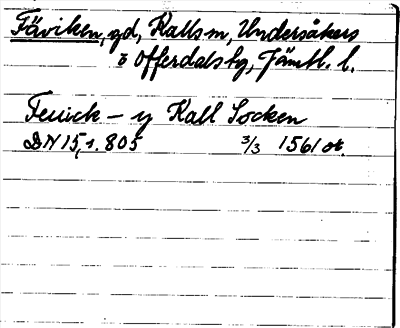 Fäviken, gd, Kalls sn, Undersåkers
o Offerdals tg, Jämtl. l.
Feuick - y Kall Socken
DN 15, s. 805 3/3 1561 or.